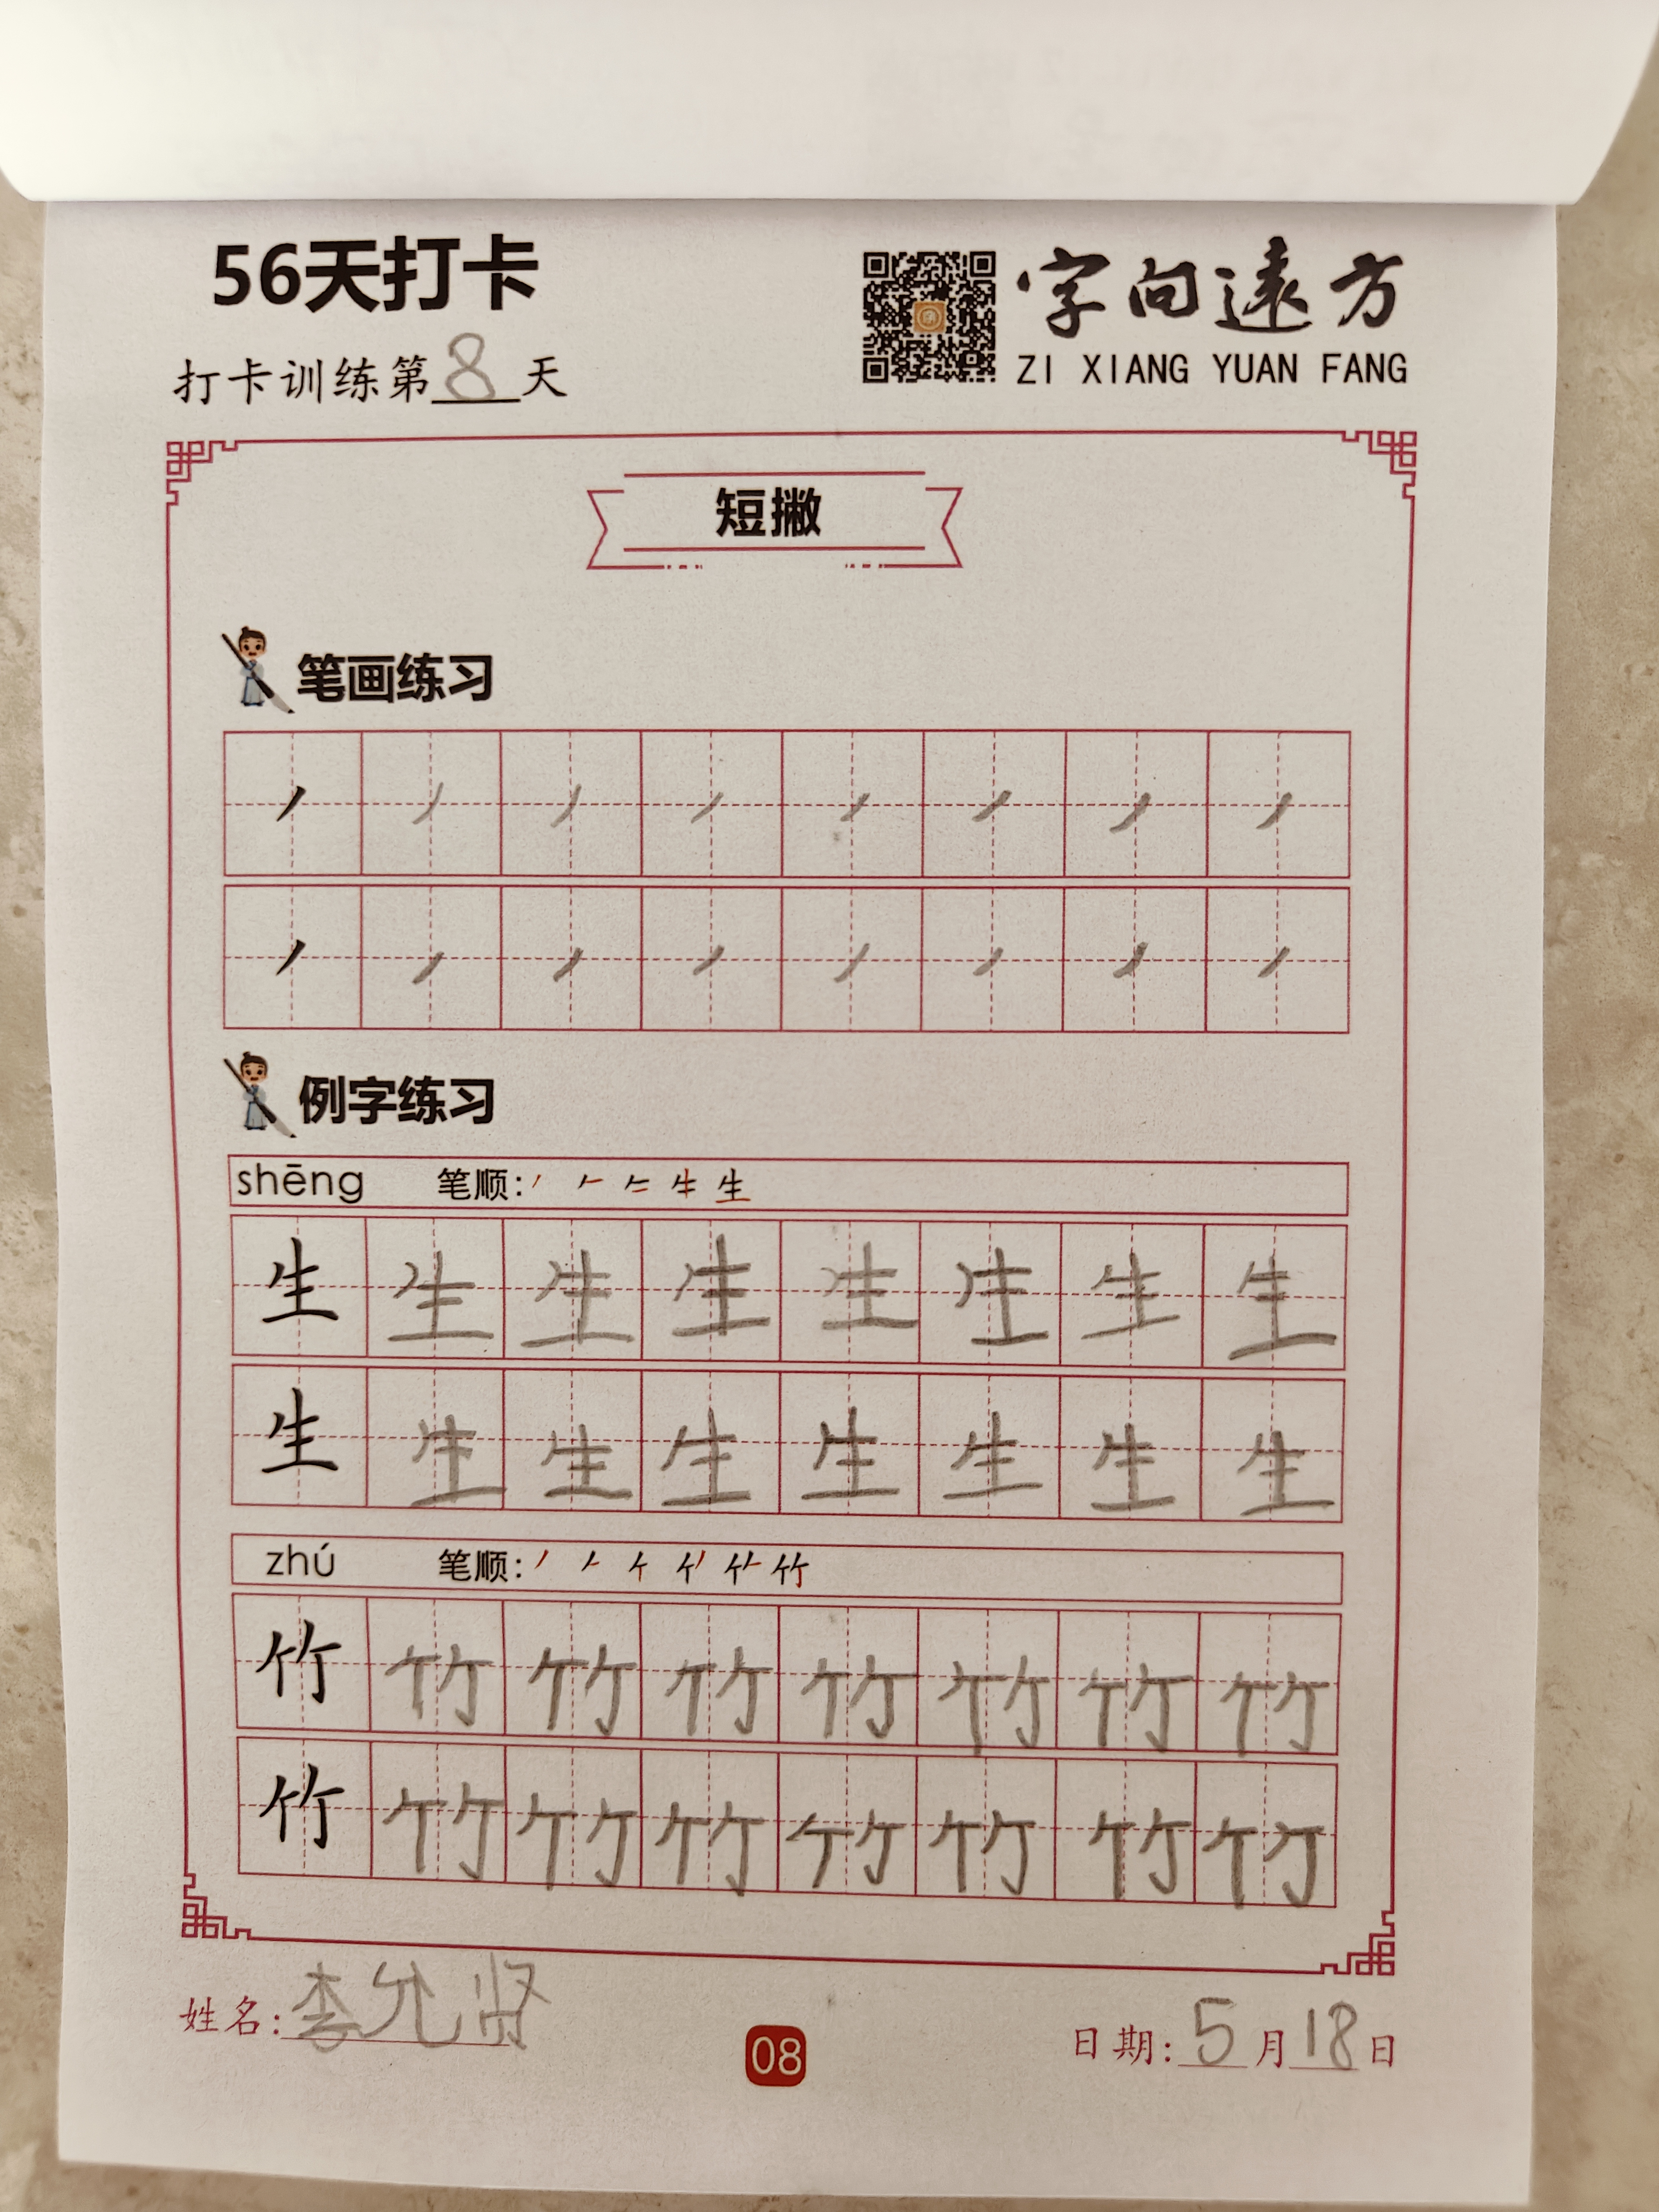 56天打卡
字向遠方
打卡训练第8天
ZI XIANG YUAN FANG
短撇
笔画练习
丿 丿 丿 丿 丿 丿 丿 丿
丿 丿 丿 丿 丿 丿 丿 丿
例字练习
shēng 笔顺: 生
生 生 生 生 生 生 生 生
生 生 生 生 生 生 生 生
zhú 笔顺: 竹
竹 竹 竹 竹 竹 竹 竹 竹
竹 竹 竹 竹 竹 竹 竹 竹
姓名: 李允贤
08
日期: 5月18日